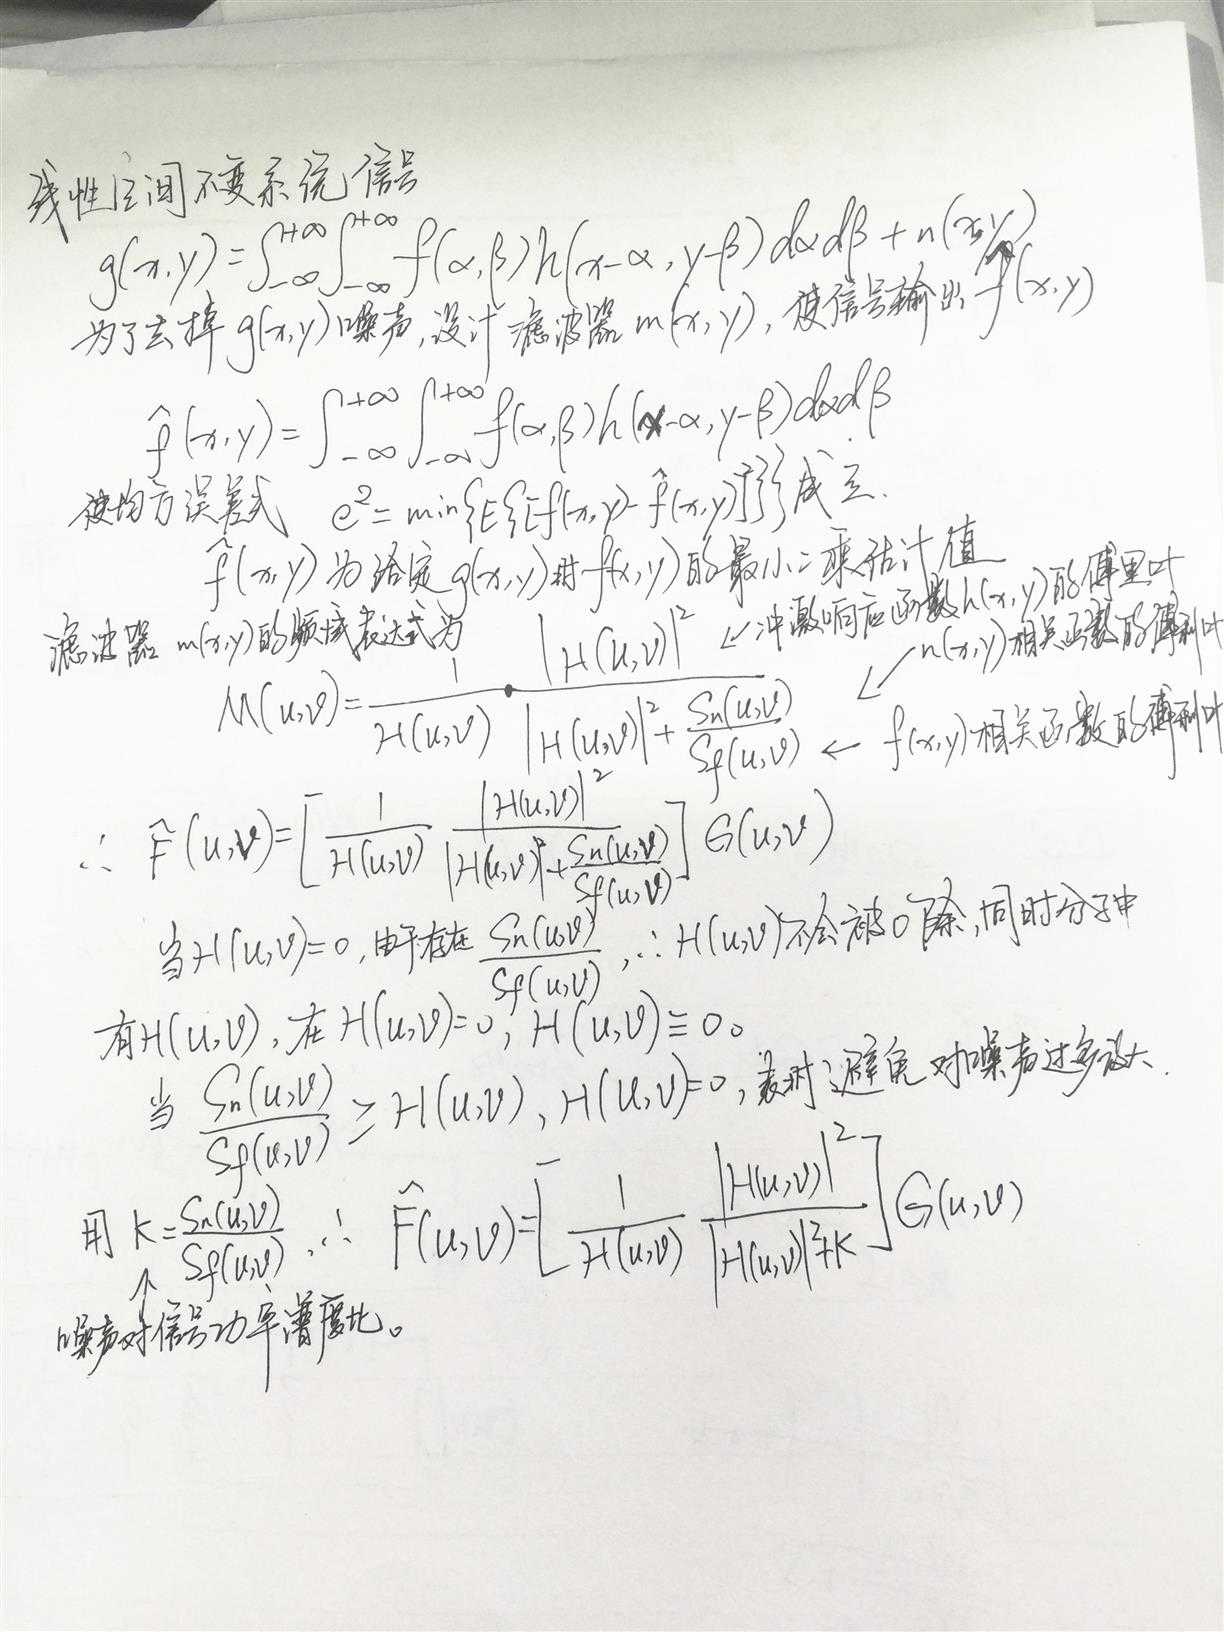 线性空间不变系统信号
g(x,y)=∫_{-∞}^{+∞}∫_{-∞}^{+∞}f(α,β)h(x-α,y-β)dαdβ+n(x,y)
为了去掉g(x,y)噪声,设计滤波器m(x,y),使信号输出f̂(x,y)
f̂(x,y)=∫_{-∞}^{+∞}∫_{-∞}^{+∞}f(α,β)h(x-α,y-β)dαdβ
使均方误差式 e²=min{E{[f(x,y)-f̂(x,y)]²}}成立.
f̂(x,y)为给定g(x,y)时f(x,y)的最小二乘估计值
滤波器m(x,y)的频域表达式为
M(u,v)=\frac{1}{H(u,v)}·\frac{|H(u,v)|²}{|H(u,v)|²+\frac{Sn(u,v)}{Sf(u,v)}}
←冲激响应函数h(x,y)的傅里叶
←n(x,y)相关函数的傅利叶
←f(x,y)相关函数的傅利叶
∴ F̂(u,v)=[\frac{1}{H(u,v)}\frac{|H(u,v)|²}{|H(u,v)|²+\frac{Sn(u,v)}{Sf(u,v)}}]G(u,v)
当H(u,v)=0,由于存在\frac{Sn(u,v)}{Sf(u,v)},∴H(u,v)不会被0除,同时分子中
有H(u,v),在H(u,v)=0,H(u,v)≡0。
当\frac{Sn(u,v)}{Sf(u,v)}≥H(u,v),H(u,v)=0,表明避免对噪声过多放大.
用K=\frac{Sn(u,v)}{Sf(u,v)},∴ F̂(u,v)=[\frac{1}{H(u,v)}\frac{|H(u,v)|²}{|H(u,v)|²+K}]G(u,v)
↑
噪声对信号功率谱度比。